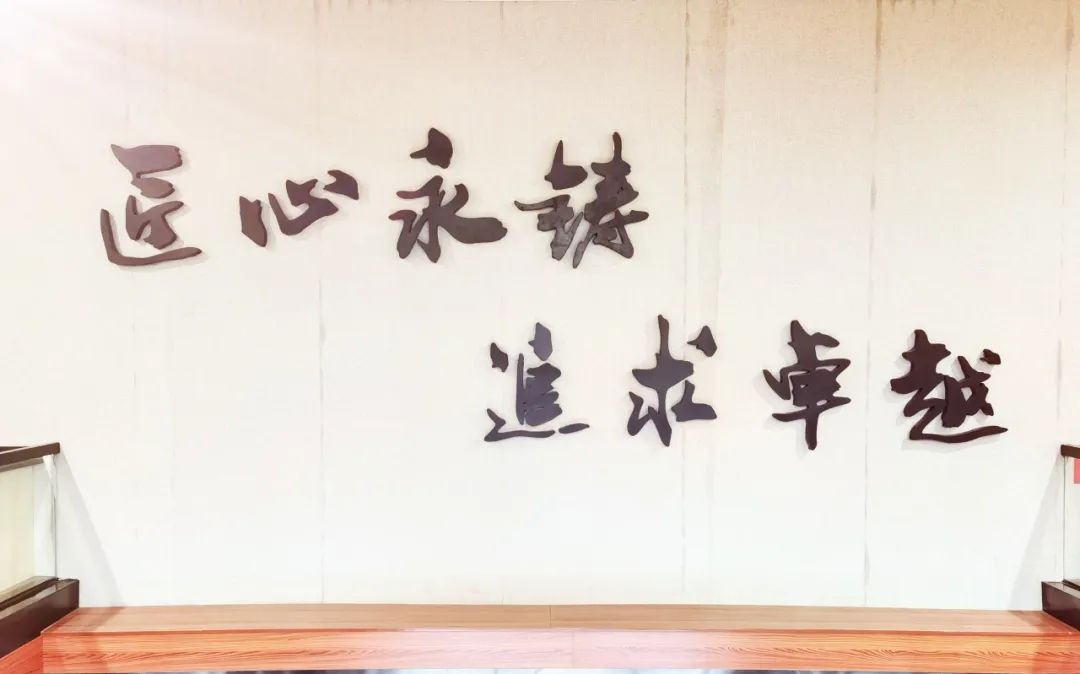 匠心永铸
追求卓越